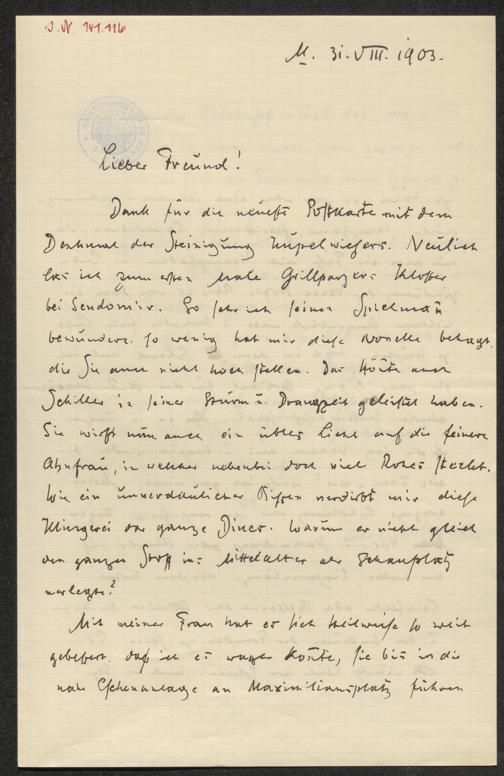 J.N. 141.116
M. 31. VIII. 1903.
Lieber Freund!
Dank für die neueste Postkarte mit dem
Denkmal der Steinigung Kupelwiesers. Neulich
las ich zum ersten Male Grillparzers Kloster
bei Sendomir. So sehr ich seinen Spielmann
bewundere, so wenig hat mir diese Novelle behagt,
die Sie auch nicht hoch stellen. Das könnte auch
Schiller in seiner Sturm u. Drangzeit geleistet haben.
Sie wirft nun auch ein übles Licht auf die feinere
Ahnfrau, in welcher nebenbei doch viel Rohes steckt.
Wie ein unverdaulicher Bissen verdirbt mir diese
das ganze Diner. Warum er nicht gleich
den ganzen Stoff ins Mittelalter als Schauplatz
verlegte?
Mit meiner Frau hat es sich teilweise so weit
gebessert, daß ich es wagen konnte, sie bis in die
nahe Eschenanlage am Maximiliansplatz führen